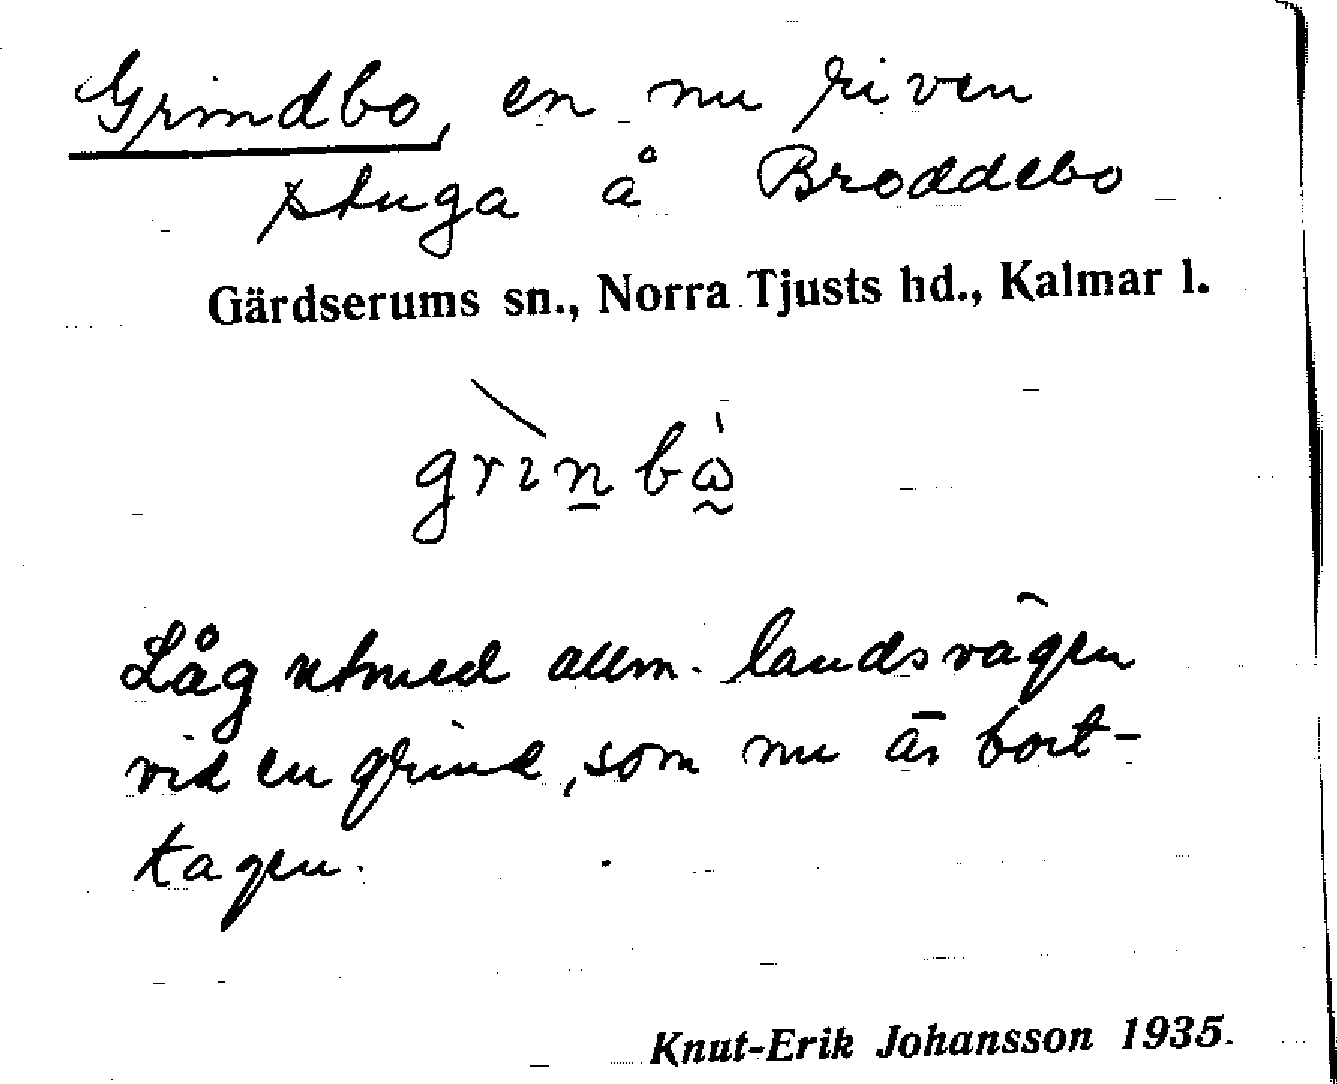 Grindbo, en nu riven
stuga å Broddebo
Gärdserums sn., Norra Tjusts hd., Kalmar l.
grìn̲bὼ̰
Låg utmed allm. landsvägen
vid en grind, som nu är bort-
tagen.
Knut-Erik Johansson 1935.